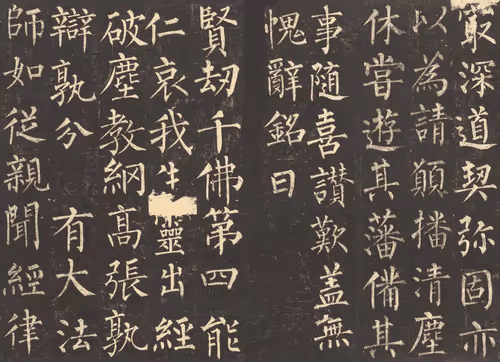 冣深道契弥固亦
以為請願播清塵
休甞遊其藩備其
事随喜讃歎盖無
愧辭銘曰
賢劫千佛第四能
仁哀我生靈出經
破塵教網高張孰
辯孰分有大法
師如從親聞經律